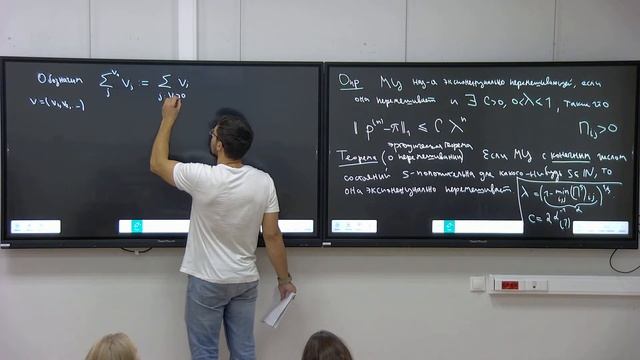 Обозначим ∑_j^{v_n} v_j := ∑_{j: v_j>0} v_j
v=(v_1, v_2, ...)
Опр МЦ наз-ся экспоненциально перемешивающей, если
она перемешивает и ∃ C>0, 0<λ<1, такие что
‖ p^{(n)} - π‖_1 ≤ C λ^n
Π_{ij}>0
эргодическая теорема
Теорема (о перемешивании) Если МЦ с конечным числом
состояний s-положительна для какого-нибудь s∈ℕ, то
она экспоненциально перемешивает
λ = (1- min_{i,j} (Π^s)_{ij})^{1/s}
α
C = 2 α^{-1} (?)